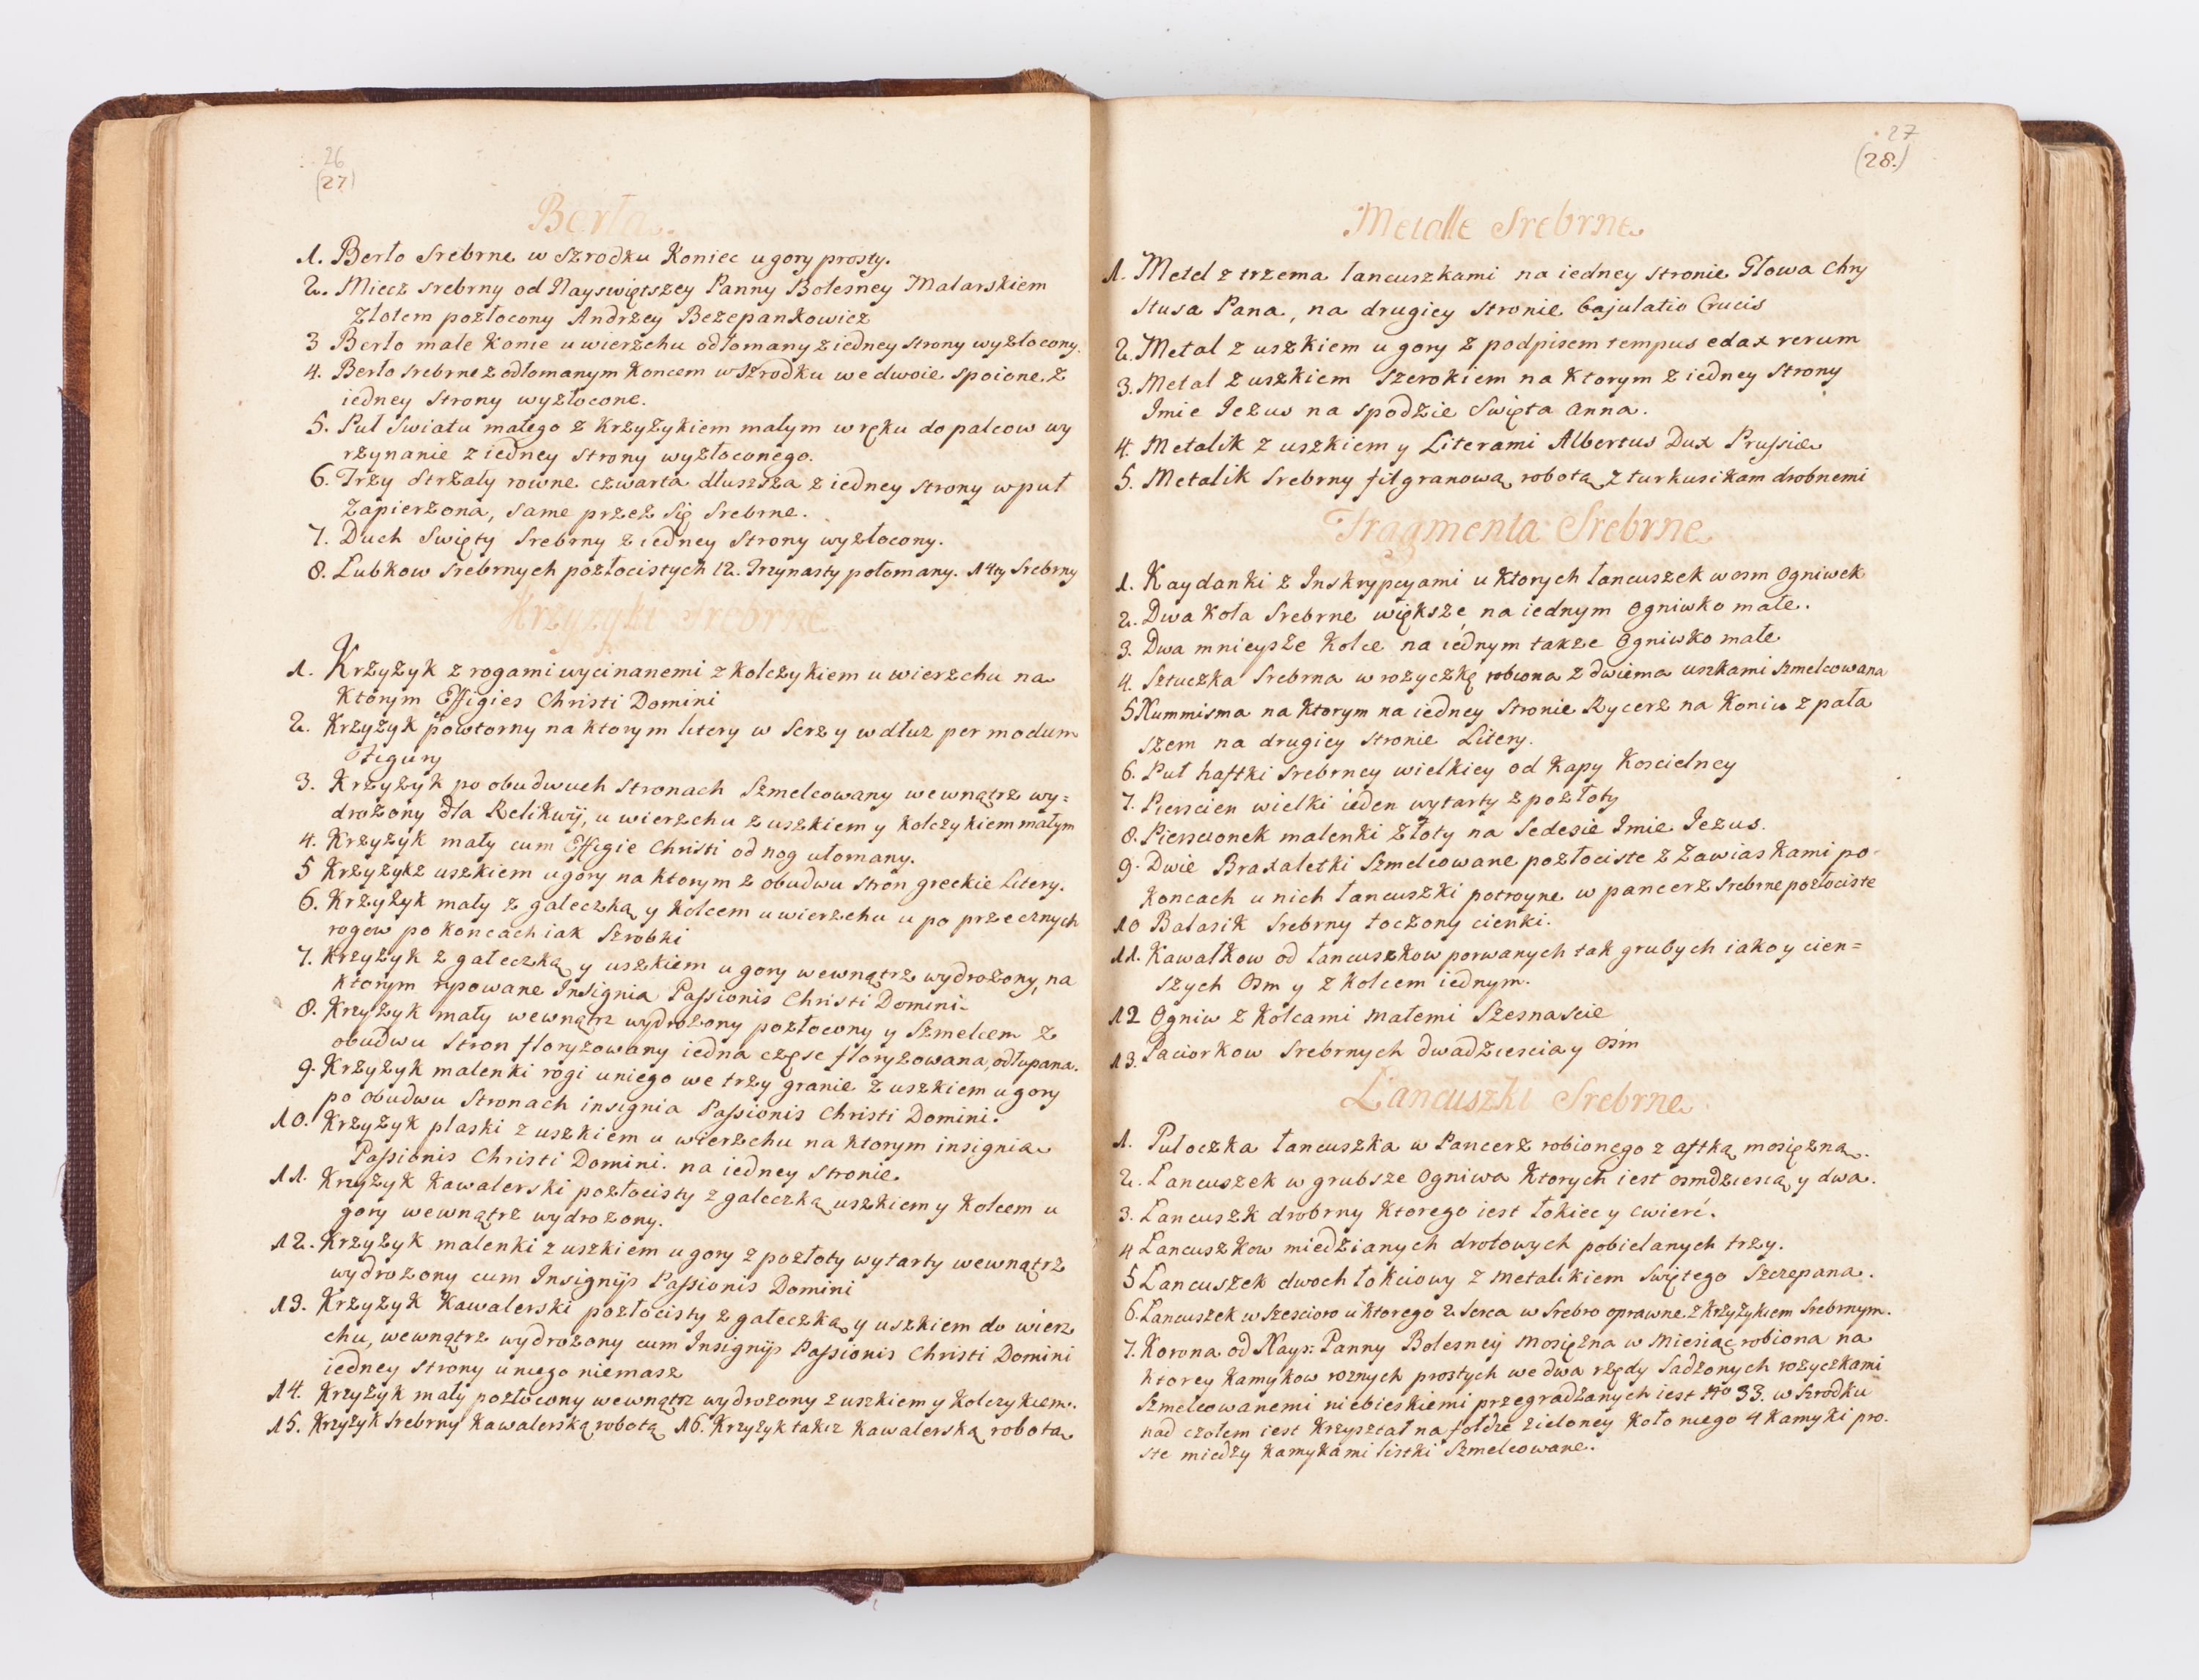 26
(27)
Berła.
1. Berło Srebrne w szrodku Koniec u gory prosty.
2. Miecz srebrny od Nayswiętszey Panny Bolesney Malarskiem
złotem pozłocony Andrzey Bezepankowicz
3 Berło małe Konie u wierzchu odłomany z iedney strony wyzłocony.
4. Berło srebrne z odłomanym Koncem w szrodku we dwoie spoione, z
iedney strony wyzłocone.
5. Puł Swiatu małego z Krzyżykiem małym w ręku do palcow wy
rzynanie z iedney strony wyzłoconego.
6. Trzy Strzały rowne czwarta dłuszsza z iedney strony w puł
zapierzona, same przez się srebrne.
7. Duch Swięty Srebrny z iedney strony wyzłocony.
8. Lubkow srebrnych pozłocistych 12. Trzynasty połomany. 14ty Srebrny
Krzyżyki Srebrne
1. Krzyżyk z rogami wycinanemi z kolczykiem u wierzchu na
Ktorym Effigies Christi Domini
2. Krzyżyk powtorny na ktorym litery w szerz y wdłuz per modum
Figury
3. Krzyżyk po obudwuch stronach Szmelcowany wewnątrz wy=
drożony dla Relikwij, u wierzchu z uszkiem y kolczykiem małym
4. Krzyżyk mały cum Effigie Christi od nog ułomany.
5 Krzyżyk z uszkiem u gory na ktorym z obudwu stron greckie Litery.
6. Krzyżyk mały z gałeczką y kolcem u wierzchu u po przecznych
rogow po koncach iak Szrobki
7. Krzyżyk z gałeczką y uszkiem u gory wewnątrz wydrożony, na
ktorym rysowane Insignia Passionis Christi Domini.
8. Krzyżyk mały wewnątrz wydrożony pozłocony y Szmelcem z
obudwu stron floryzowany iedna częsc floryzowana, odłupana.
9. Krzyżyk malenki rogi u niego we trzy granie z uszkiem u gory
po obudwu stronach insignia Passionis Christi Domini.
10. Krzyżyk płaski z uszkiem u wierzchu na ktorym insignia
Passionis Christi Domini. na iedney stronie.
11. Krzyżyk Kawalerski pozłocisty z gałeczką uszkiem y kolcem u
gory wewnątrz wydrożony.
12. Krzyżyk malenki z uszkiem u gory z pozłoty wytarty wewnątrz
wydrożony cum Insignijs Passionis Domini
13. Krzyżyk Kawalerski pozłocisty z gałeczką y uszkiem do wierz
chu, wewnątrz wydrożony cum Insignijs Passionis Christi Domini
iedney strony u niego niemasz
14. Krzyżyk mały pozłocony wewnątrz wydrożony z uszkiem y kolczykiem.
15. Krzyżyk Srebrny Kawalerską robotą 16. Krzyżyk takiz Kawalerską robotą
27
(28.)
Metalle Srebrne
1. Metel z trzema łancuszkami na iedney stronie Głowa Chry
stusa Pana, na drugiey stronie bajulatio Crucis
2. Metal z uszkiem u gory z podpisem tempus edax rerum
3. Metal z uszkiem szerokiem na ktorym z iedney strony
Imie Iezus na spodzie Swięta Anna.
4. Metalik z uszkiem y Literami Albertus Dux Prussiæ
5. Metalik Srebrny filgranową robotą z turkusikam drobnemi
Fragmenta Srebrne
1. Kaydanki z Inskrypcyami u ktorych łancuszek w osm Ogniwek
2. Dwa koła Srebrne większe, na iednym Ogniwko małe.
3. Dwa mnieysze kolce na iednym także Ogniwko małe
4. Sztuczka Srebrna w rożyczkę robiona z dwiema uszkami szmelcowana
5 Nummisma na ktorym na iedney stronie Rycerz na Koniu z pała
szem na drugiey stronie Litery.
6. Puł haftki srebrney wielkiey od Kapy Koscielney
7. Pierscien wielki ieden wytarty z pozłoty
8. Pierscionek malenki złoty na Sedesie Imie Iezus.
9. Dwie Braxaletki Szmelcowane pozłociste z Zawiaskami po
koncach u nich łancuszki potroyne w pancerz srebrne pozłociste
10 Balasik Srebrny toczony cienki.
11. Kawałkow od łancuszkow porwanych tak grubych iako y cien=
szych Osm y z kolcem iednym.
12 Ogniw z kolcami małemi Szesnascie
13. Paciorkow Srebrnych dwadziescia y Osm
Łancuszki Srebrne
1. Puloczka łancuszka w Pancerz robionego z aftką mosiężną.
2. Lancuszek w grubsze Ogniwa Ktorych iest osmdziesią y dwa.
3. Lancuszk drobrny Ktorego iest łokiec y cwierć.
4 Lancuszkow miedzianych drotowych pobielanych trzy.
5 Lancuszek dwoch łokciowy z metalikiem Swiętego Szczepana.
6. Lancuszek w Szescioro u ktorego 2. Serca w Srebro oprawne z krzyżykiem Srebrnym.
7. Korona od Nays: Panny Bolesney mosiężna w miesiąc robiona na
ktorey kamykow roznych prostych we dwa rzędy sadzonych rożyczkami
Szmelcowanemi niebieskiemi przegradzanych iest No 33. w Szrodku
nad czołem iest Krzyształ na fołdze zieloney koło niego 4 kamyki pro.
ste między kamykami listki Szmelcowane.